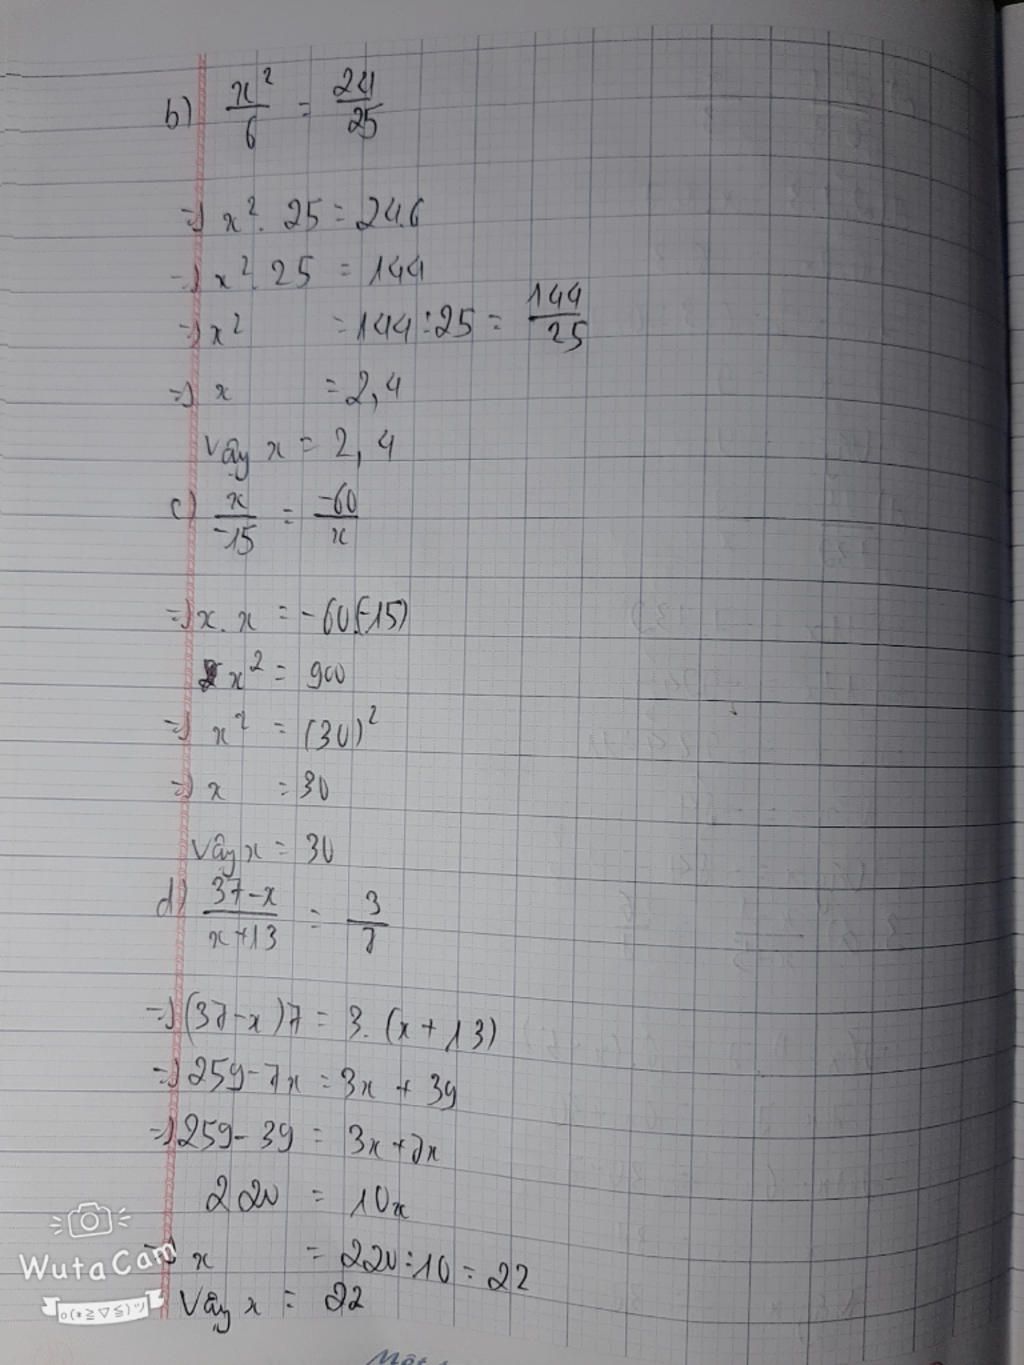 b) x²/6 = 24/25
=> x². 25 = 24.6
=> x² 25 = 144
=> x² = 144 : 25 = 144/25
=> x = 2,4
Vậy x = 2, 4
c) x/-15 = -60/x
=> x. x = -60.(-15)
x² = 900
=> x² = (30)²
=> x = 30
Vậy x = 30
d) 37-x/x+13 = 3/7
=> (37-x)7 = 3. (x + 13)
=> 259-7x = 3x + 39
=> 259 - 39 = 3x + 7x
220 = 10x
=> x = 220 : 10 = 22
Vậy x = 22
WutaCam
o(*≧▽≦)ツ